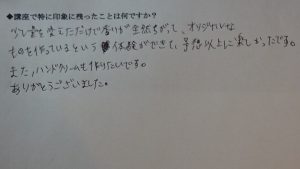 ◆講座で特に印象に残ったことは何ですか?
少し量を変えただけで香りが全然ちがって、オリジナルな
ものを作っているという体験ができて、予想以上に楽しかったです。
また、ハンドクリームも作りたいです。
ありがとうございました。